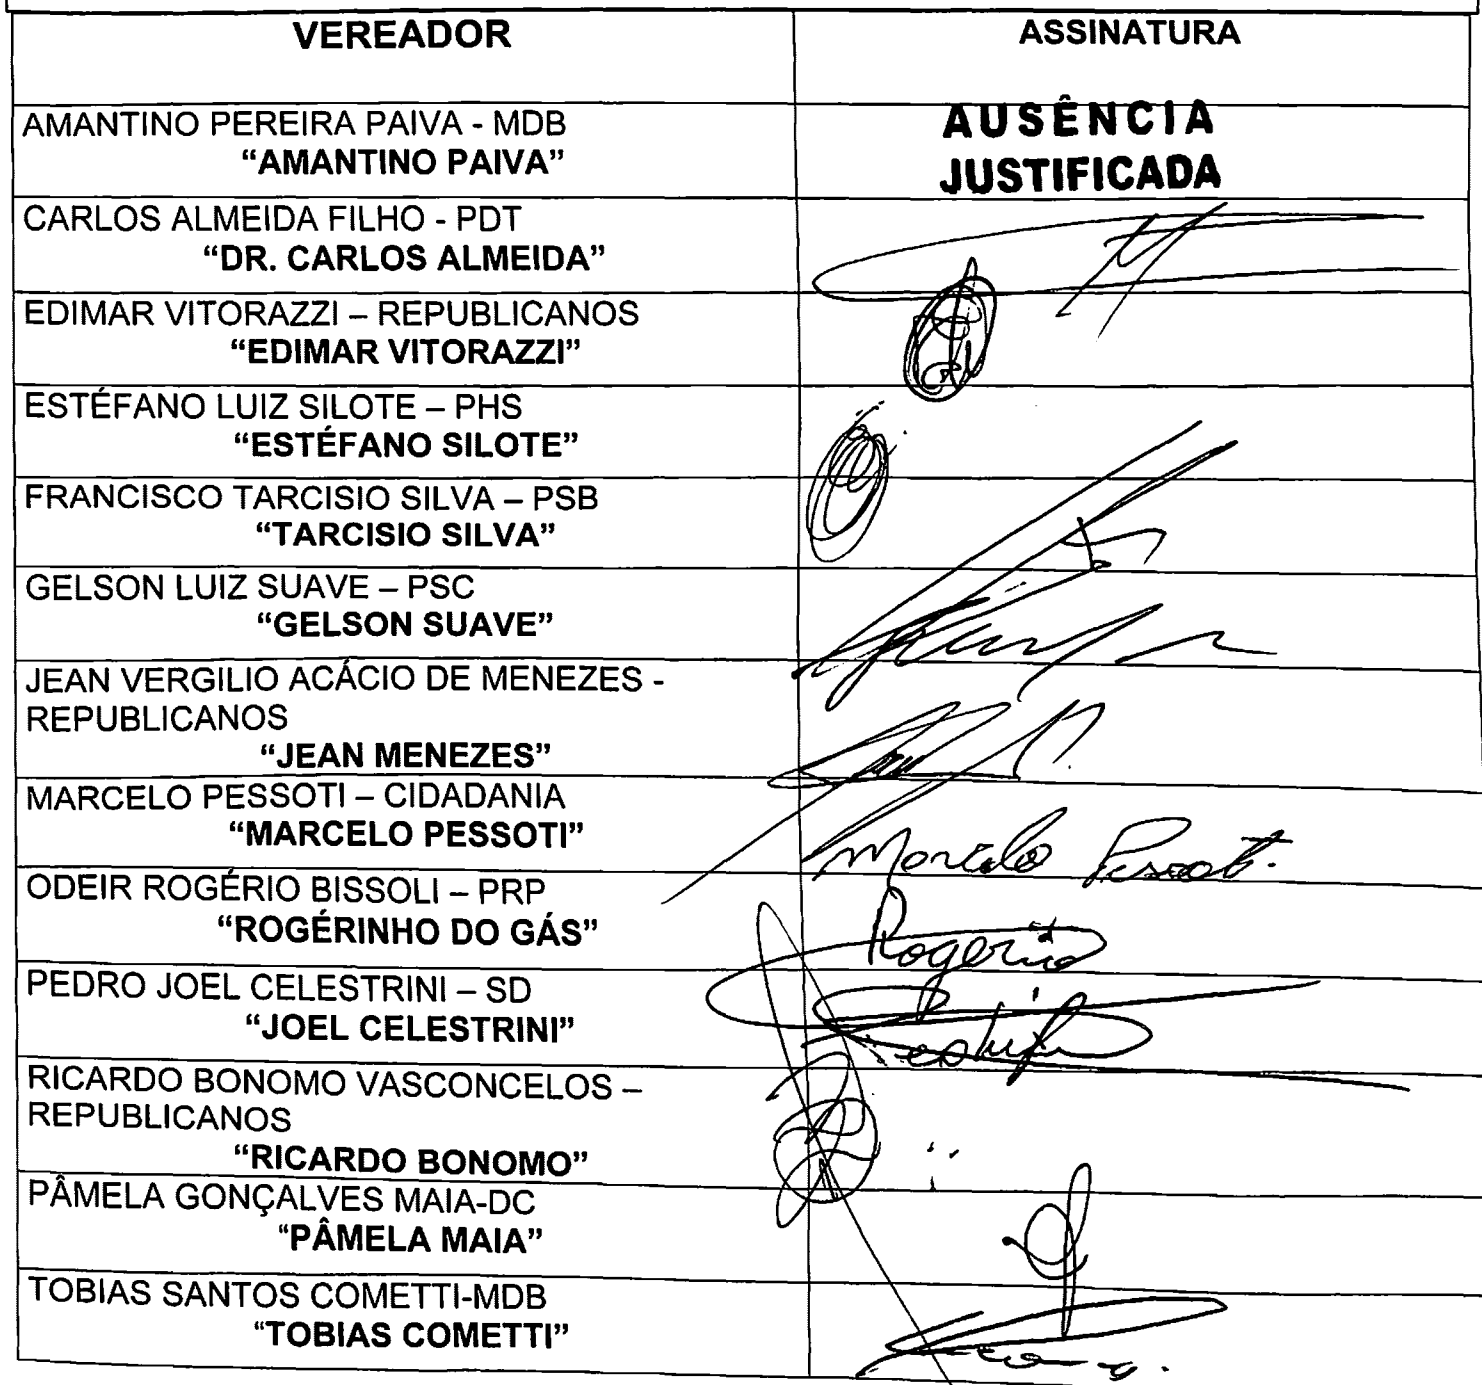 VEREADOR ASSINATURA
AMANTINO PEREIRA PAIVA - MDB
"AMANTINO PAIVA"
AUSÊNCIA
JUSTIFICADA
CARLOS ALMEIDA FILHO - PDT
"DR. CARLOS ALMEIDA"
EDIMAR VITORAZZI – REPUBLICANOS
"EDIMAR VITORAZZI"
ESTÉFANO LUIZ SILOTE – PHS
"ESTÉFANO SILOTE"
FRANCISCO TARCISIO SILVA – PSB
"TARCISIO SILVA"
GELSON LUIZ SUAVE – PSC
"GELSON SUAVE"
JEAN VERGILIO ACÁCIO DE MENEZES -
REPUBLICANOS
"JEAN MENEZES"
MARCELO PESSOTI – CIDADANIA
"MARCELO PESSOTI"
Marcelo Pessoti
ODEIR ROGÉRIO BISSOLI – PRP
"ROGÉRINHO DO GÁS"
Rogerio
PEDRO JOEL CELESTRINI – SD
"JOEL CELESTRINI"
RICARDO BONOMO VASCONCELOS –
REPUBLICANOS
"RICARDO BONOMO"
PÂMELA GONÇALVES MAIA-DC
"PÂMELA MAIA"
TOBIAS SANTOS COMETTI-MDB
"TOBIAS COMETTI"